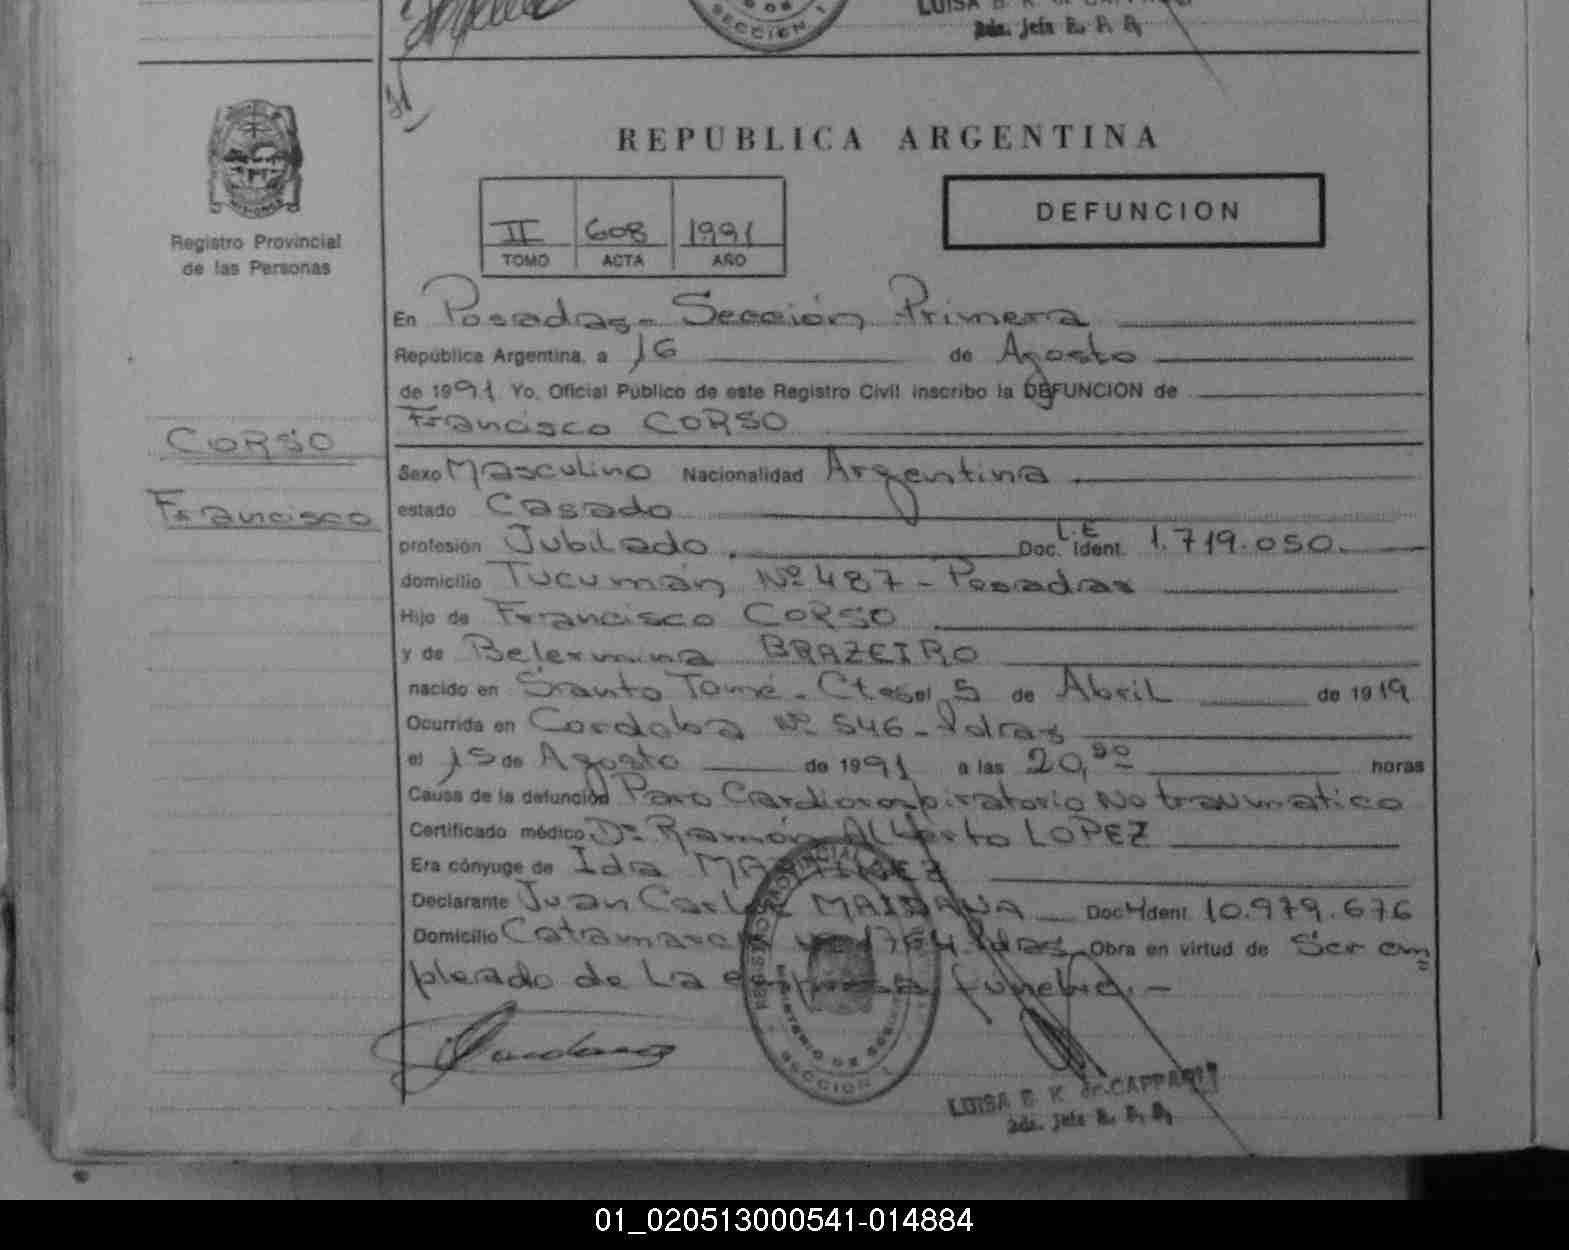 SECCION 1
LUISA B. K. de CAPPARI
Jefa R. P. P.
REPUBLICA ARGENTINA
Registro Provincial
de las Personas
II 608 1991
TOMO ACTA AÑO
DEFUNCION
En Posadas - Sección Primera
República Argentina, a 16 de Agosto
de 1991. Yo, Oficial Público de este Registro Civil inscribo la DEFUNCION de
Francisco CORSO
CORSO
Francisco
Sexo Masculino Nacionalidad Argentina
estado Casado
profesión Jubilado. Doc. Ident. L.E 1.719.050.
domicilio Tucumán Nº 487 - Posadas
Hijo de Francisco CORSO
y de Belermina BRAZEIRO
nacido en Santo Tomé - Ctes el 5 de Abril de 1919
Ocurrida en Cordoba Nº 546 - Pdras
el 15 de Agosto de 1991 a las 20, horas
Causa de la defunción Paro Cardiorespiratorio No traumatico
Certificado médico Dr. Ramón Alberto LOPEZ
Era cónyuge de Ida MARTINEZ
Declarante Juan Carlos MAIDANA Doc. Ident. 10.979.676
Domicilio Catamarca Nº 1764 Pdras Obra en virtud de Ser em=
pleado de La empresa funebre. -
REGISTRO PROVINCIAL
MINISTERIO DE
SECCION 1
LUISA B. K. de CAPPARI
Jefa R. P. P.
01_020513000541-014884